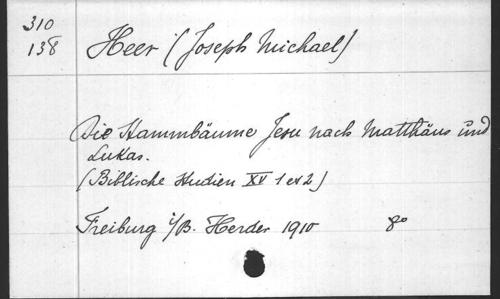 310
138
Heer (Joseph Michael)
Die Stammbäume Jesu nach Matthäus und
Lukas.
(Biblische Studien XV 1 et 2)
Freiburg i/B. Herder 1910 8°